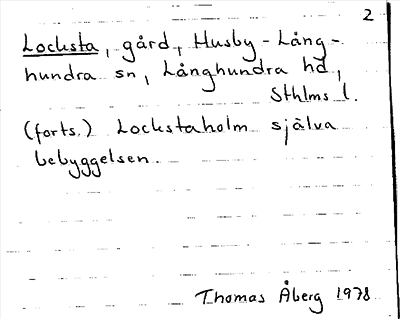 2
Locksta, gård, Husby-Lång-
hundra sn, Långhundra hd,
Sthlms l.
(forts.) Lockstaholm själva
bebyggelsen.
Thomas Åberg 1978